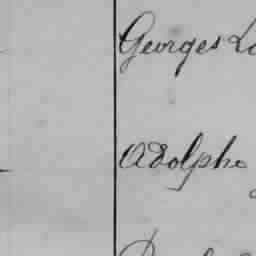 Georges
Adolphe